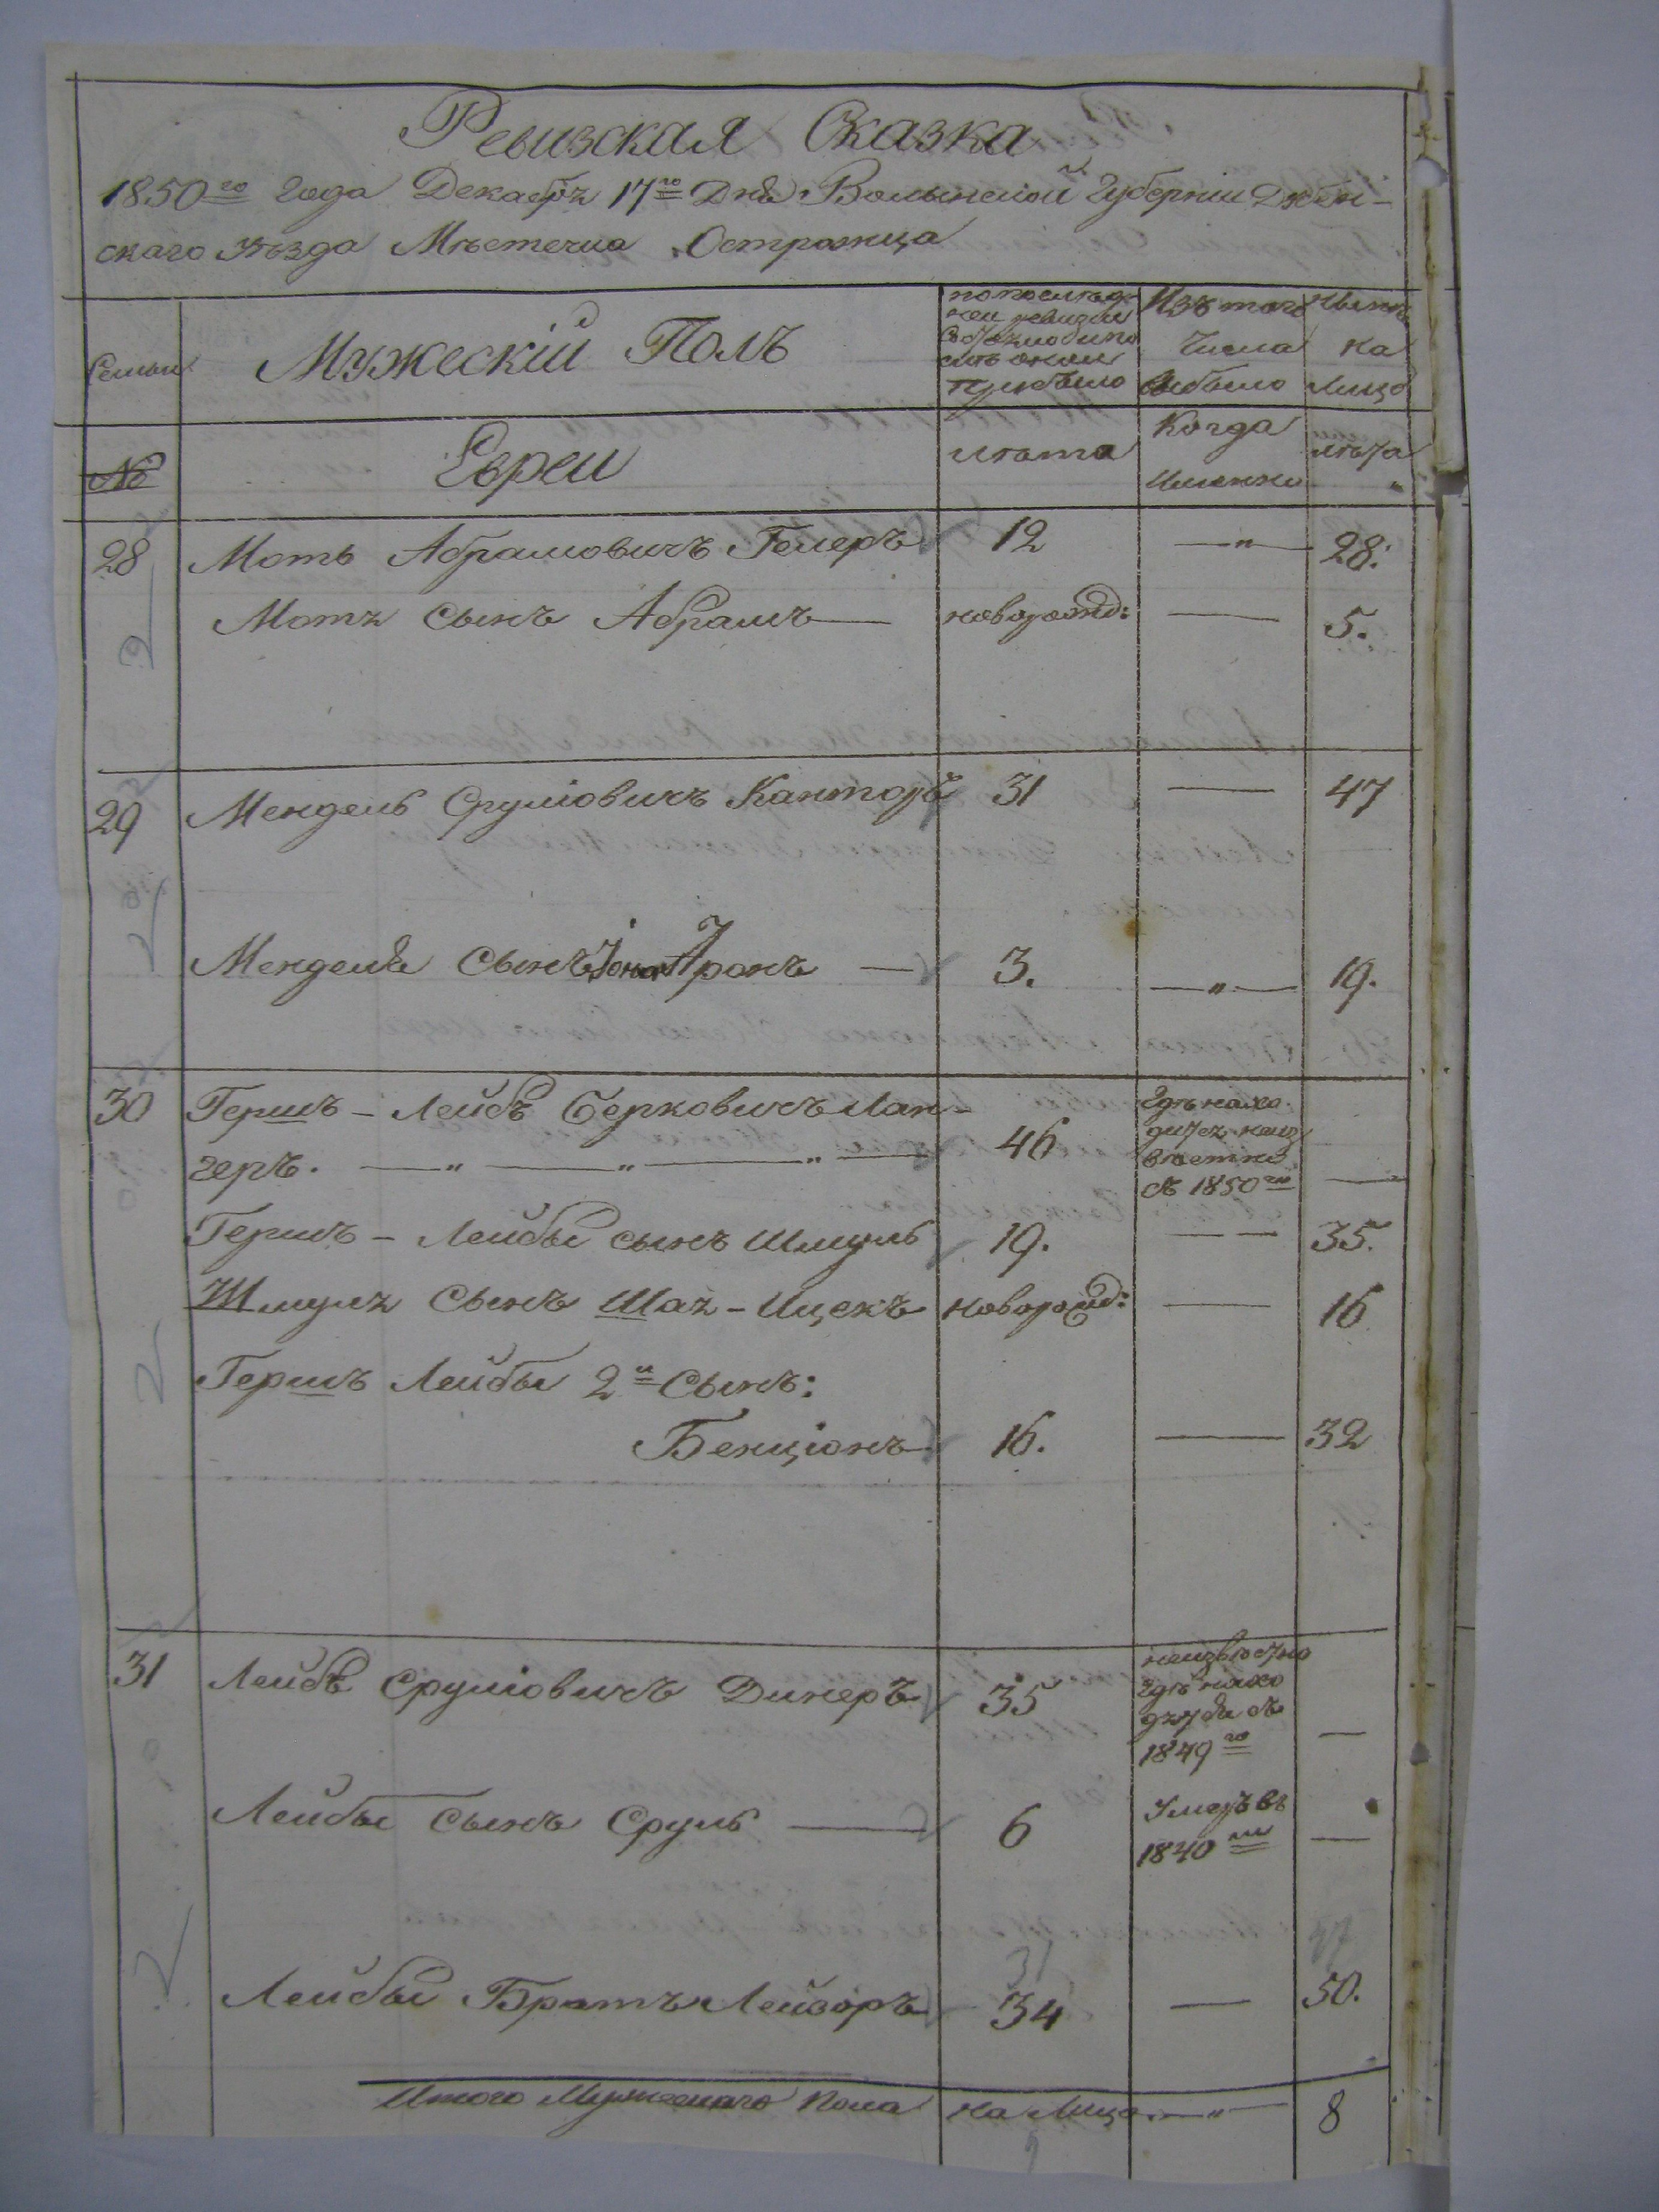 Ревизская Сказка
1850го года Декабрь 17го Дня Волынской Губерніи Дубен-
скаго уѣзда Мѣстечка Острожца
Семьи
Мужескій Полъ
по послѣд-
ней ревизіи
состояло и по
слѣ оной
прибыло
Изъ того
Числа
выбыло
Нынѣ
на
лицо
№
Евреи
лѣта
Когда
именно
лѣта
28 Моть Абрамовичъ Гелеръ 12 —"— 28.
Мотя сынъ Абрамъ — новорожд: — 5.
29 Мендель Срулiовичъ Канторъ 31 — 47
Менделя сынъ Iона Аронъ — 3. —"— 19.
30 Гершъ - Лейбъ Берковичъ Лан-
геръ. —"—"—"— 46
гдѣ нахо-
дится неиз
вѣстно
съ 1850го
—
Гершъ - Лейбы сынъ Шмуль 19. — — 35.
Шмуля сынъ Шая-Ицекъ новорожд: — 16
Гершъ Лейбы 2й сынъ:
Бенціонъ 16. — 32
31 Лейбъ Срулiовичъ Динеръ 35
неизвѣстно
гдѣ нахо
дится съ
1849го
—
Лейбы сынъ Сруль — 6
Умеръ въ
1840м
—
31
Лейбы Братъ Лейзоръ 34 — 50.
Итого Мужескаго пола на лицо —"— 8